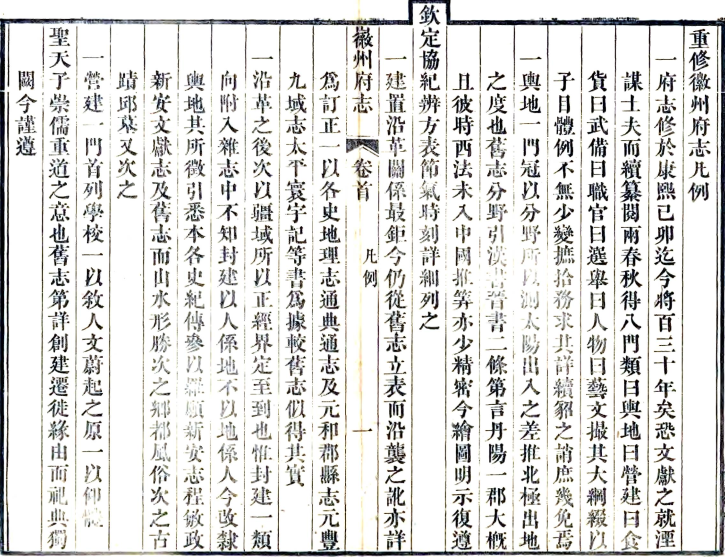 重修徽州府志凡例
一府志修於康熙己卯迄今將百三十年矣恐文獻之就湮
謀士夫而續纂閱兩春秋得八門類曰輿地曰營建曰食
貨曰武備曰職官曰選舉曰人物曰藝文撮其大綱綴以
子目體例不無少變摭拾務求其詳續貂之誚庶幾免焉
一輿地一門冠以分野所以測太陽出入之差推北極出地
之度也舊志分野引漢書晉書二條第言丹陽一郡大概
且彼時西法未入中國推筭亦少精密今繪圖明示復遵
欽定協紀辨方表節氣時刻詳細列之
一建置沿革關係最鉅今仍從舊志立表而沿襲之訛亦詳
徽州府志 卷首 凡例 一
為訂正一以各史地理志通典通志及元和郡縣志元豐
九域志太平寰宇記等書為據較舊志似得其實
一沿革之後次以疆域所以正經界定至到也惟封建一類
向附入雜志中不知封建以人係地不以地係人今改隸
輿地其所徵引悉本各史紀傳參以羅願新安志程敏政
新安文獻志及舊志而山水形勝次之鄉都風俗次之古
蹟邱墓又次之
一營建一門首列學校一以敘人文蔚起之原一以仰體
聖天子崇儒重道之意也舊志第詳創建遷徙緣由而祀典獨
闕今謹遵